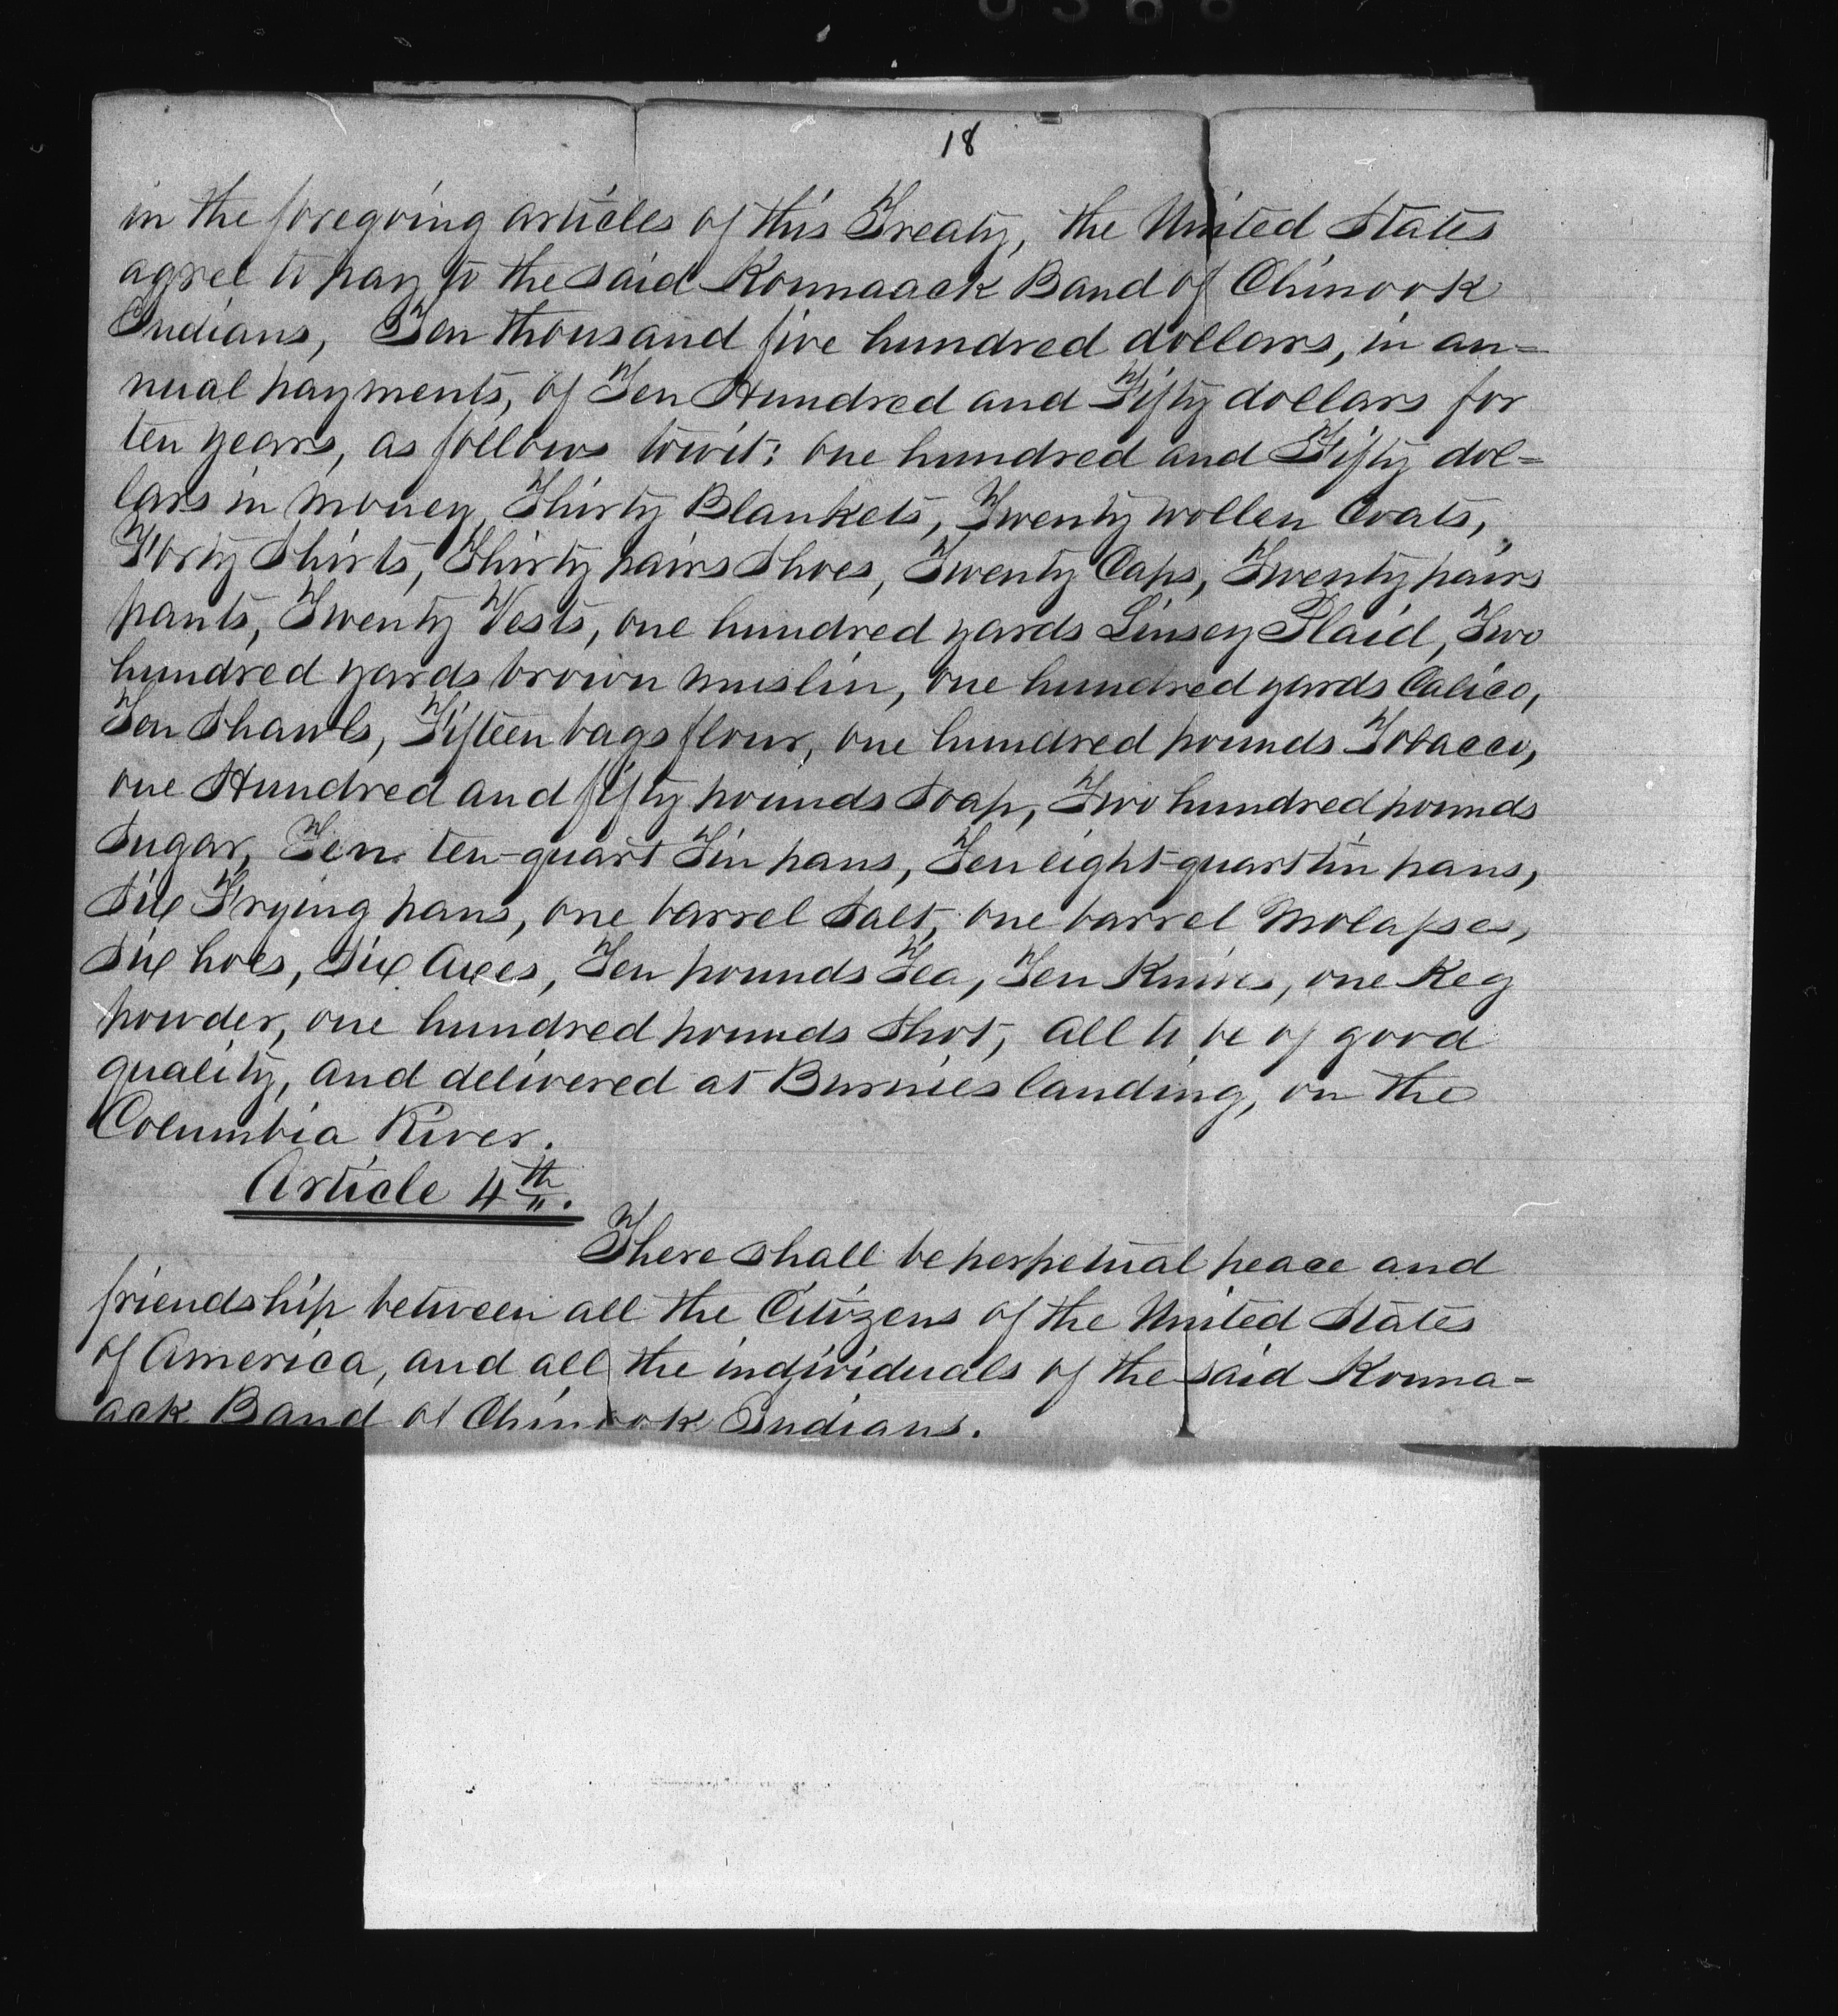 18
in the foregoing articles of this Treaty, the United States
agree to pay to the said Konnaack Band of Chinook
Indians, Ten thousand five hundred dollars, in an=
nual payments, of Ten Hundred and Fifty dollars for
ten years, as follows towit: one hundred and Fifty dol=
lars in money, Thirty Blankets, Twenty wollen Coats,
Forty Shirts, Thirty pairs Shoes, Twenty Caps, Twenty pairs
pants, Twenty Vests, one hundred yards Linsey Plaid, Two
hundred yards brown muslin, one hundred yards Calico,
Ten Shawls, Fifteen bags flour, one hundred pounds Tobacco,
one Hundred and fifty pounds Soap, Two hundred pounds
Sugar, Ten ten-quart Tin pans, Ten eight-quart tin pans,
Six Frying pans, one barrel Salt, one barrel Molasses,
Six hoes, Six Axes, Ten pounds Tea, Ten Knives, one Keg
powder, one hundred pounds Shot, all to be of good
quality, and delivered at Burnies landing, on the
Columbia River.
Article 4th.
There shall be perpetual peace and
friendship between all the Citizens of the United States
of America, and all the individuals of the said Konna-
ack Band of Chinook Indians.